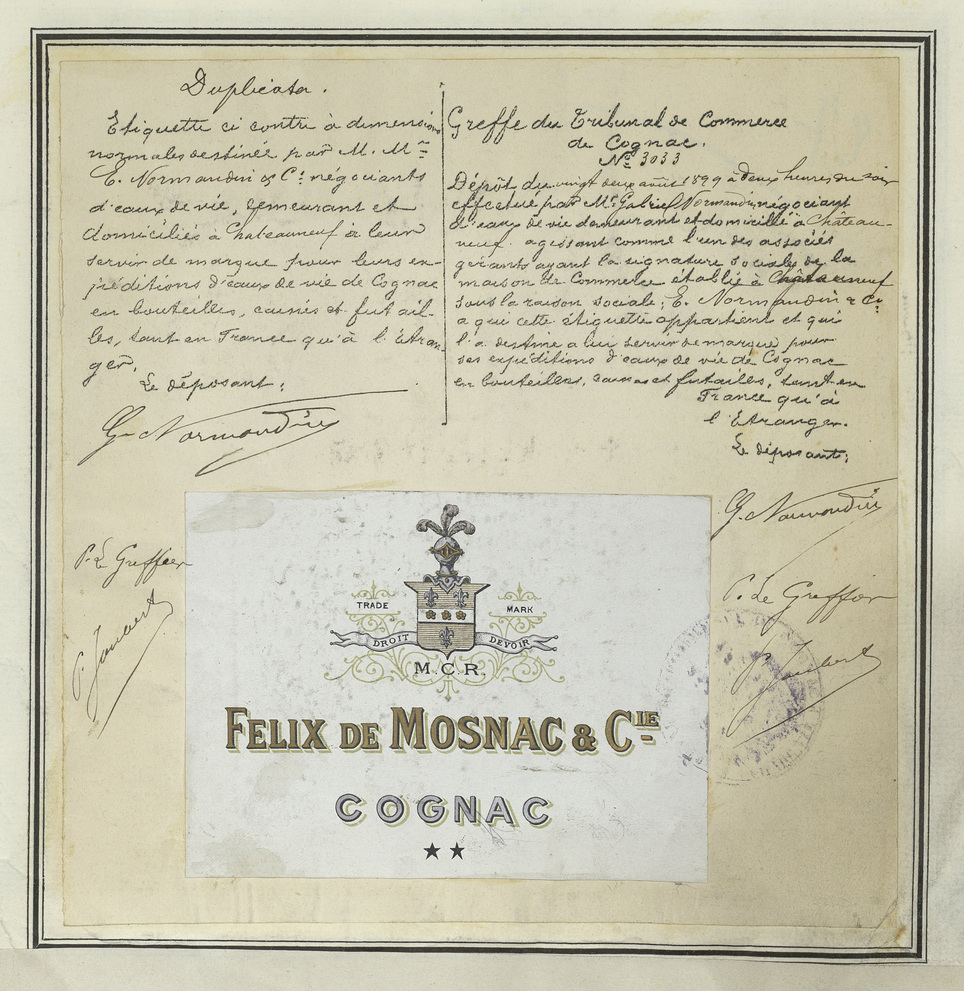 Duplicata.
Etiquette ci contre à dimensions
normales destinée par M. M.rs
E. Normandin & Cie négociants
d'eaux de vie, demeurant et
domiciliés à Chateauneuf à leur
servir de marque pour leurs ex-
péditions d'eaux de vie de Cognac
en bouteilles, caisses et futail-
les, tant en France qu'à l'Etran-
ger.
Le déposant;
G. Normandin
P. Le Greffier
P. Joubert
Greffe du Tribunal de Commerce
de Cognac.
No 3033
Dépôt du vingt deux août 1899 à deux heures du soir
effectué par Mr Gabriel Normandin négociant
d'eaux de vie demeurant et domicilié à Château-
neuf agissant comme l'un des associés
gérants ayant la signature sociale de la
maison de Commerce établie à Châteauneuf
sous la raison sociale; E. Normandin & Cie
a qui cette étiquette appartient et qui
l'a destiné a lui servir de marque pour
ses expéditions d'eaux de vie de Cognac
en bouteilles, caisses et futailles, tant en
France qu'à
l'Etranger.
Le déposant;
G. Normandin
P. Le Greffier
P. Joubert
TRADE MARK
DROIT DEVOIR
M.C.R.
FELIX DE MOSNAC & CIE
COGNAC